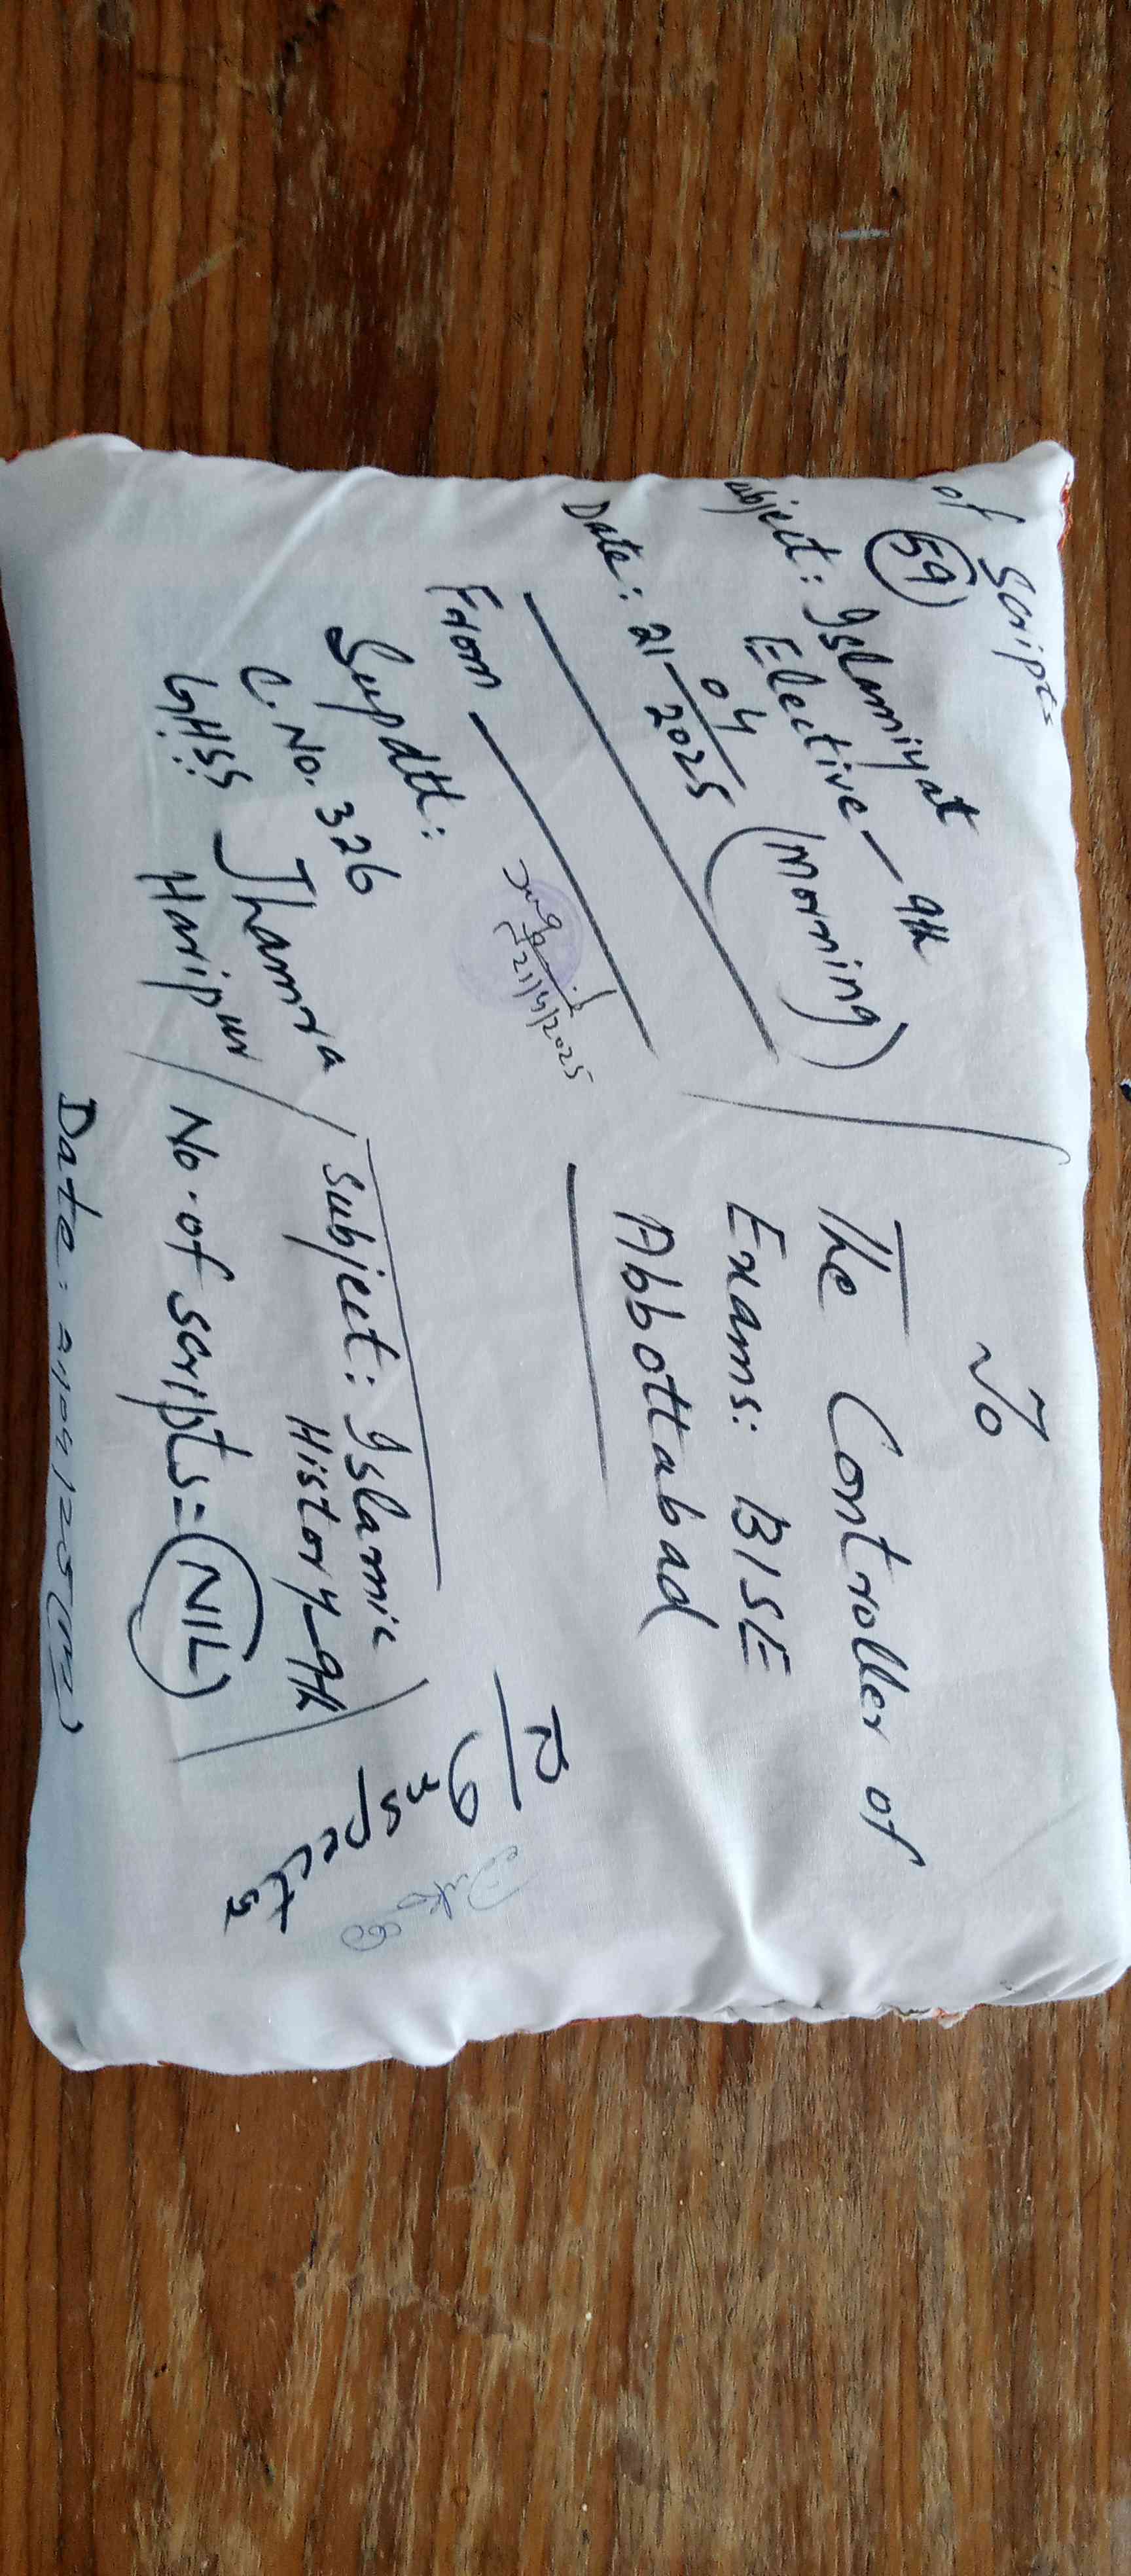 of Scripts
59
ubject: Islamiyat
Elective - 9th
(Morning)
Date: 21-04
2025
To
The Controller of
Exams: BISE
Abbottabad
From
Supdtt:
C. No. 326
GHSS Jhamra
Haripur
21/4/2025
Subject: Islamic
History-9th
No. of scripts = NIL
Date: 21/04/2025(M)